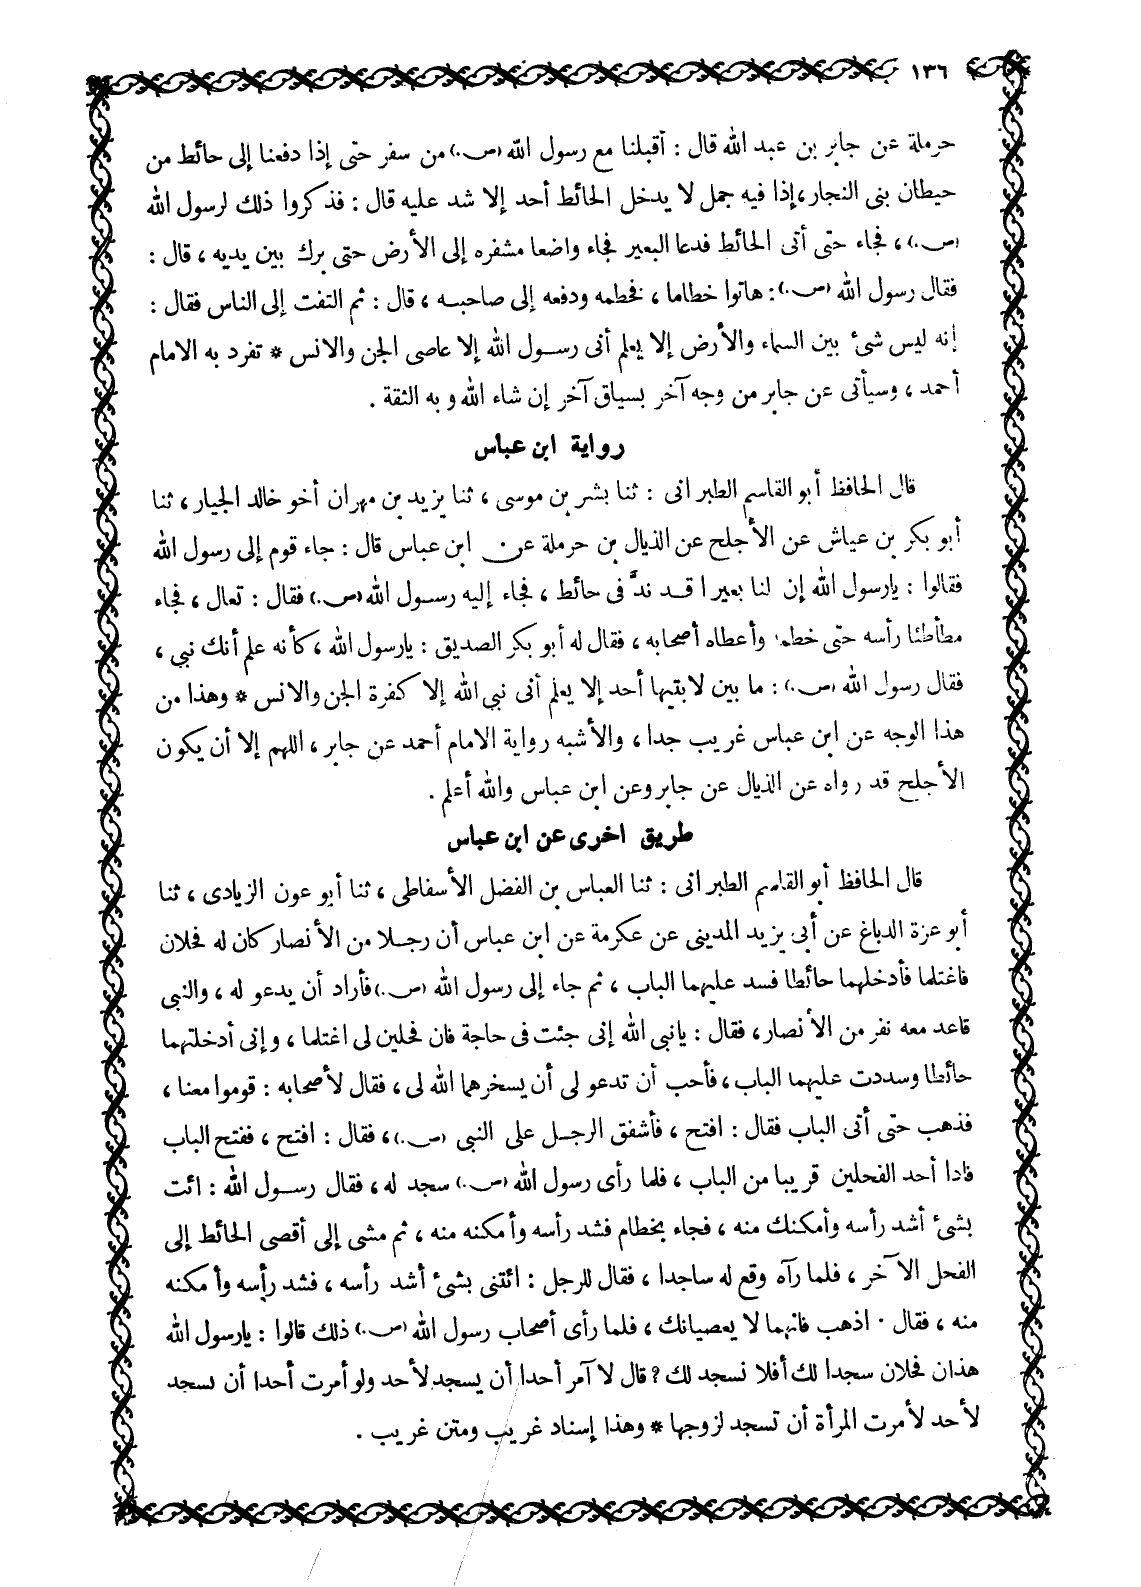 ١٣٦
حرملة عن جابر بن عبد الله قال : أقبلنا مع رسول الله (ص.) من سفر حتى إذا دفعنا إلى حائط من
حيطان بنى النجار، إذا فيه جمل لا يدخل الحائط أحد إلا شد عليه قال : فذكروا ذلك لرسول الله
(ص.) ، فجاء حتى أتى الحائط فدعا البعير فجاء واضعا مشفره إلى الأرض حتى برك بين يديه ، قال :
فقال رسول الله (ص.) : هاتوا خطاما ، فخطمه ودفعه إلى صاحبه ، قال : ثم التفت إلى الناس فقال :
إنه ليس شئ بين السماء والأرض إلا يعلم أنى رسول الله إلا عاصى الجن والانس * تفرد به الامام
أحمد ، وسيأتى عن جابر من وجه آخر بسياق آخر إن شاء الله وبه الثقة .
رواية ابن عباس
قال الحافظ أبو القاسم الطبرانى : ثنا بشر بن موسى ، ثنا يزيد بن مهران أخو خالد الجيار ، ثنا
أبو بكر بن عياش عن الأجلح عن الذيال بن حرملة عن ابن عباس قال : جاء قوم إلى رسول الله
فقالوا : يارسول الله إن لنا بعيرا قد ندَّ فى حائط ، فجاء إليه رسول الله (ص.) فقال : تعال ، فجاء
مطأطئا رأسه حتى خطمه وأعطاه أصحابه ، فقال له أبو بكر الصديق : يارسول الله ، كأنه علم أنك نبى ،
فقال رسول الله (ص.) : ما بين لابتيها أحد إلا يعلم أنى نبى الله إلا كفرة الجن والانس * وهذا من
هذا الوجه عن ابن عباس غريب جدا ، والأشبه رواية الامام أحمد عن جابر ، اللهم إلا أن يكون
الأجلح قد رواه عن الذيال عن جابر وعن ابن عباس والله أعلم .
طريق اخرى عن ابن عباس
قال الحافظ أبو القاسم الطبرانى : ثنا العباس بن الفضل الأسفاطى ، ثنا أبو عون الزيادى ، ثنا
أبو عزة الدباغ عن أبى يزيد المدينى عن عكرمة عن ابن عباس أن رجلا من الأنصار كان له فحلان
فاغتلما فأدخلهما حائطا فسد عليهما الباب ، ثم جاء إلى رسول الله (ص.) فأراد أن يدعو له ، والنبى
قاعد معه نفر من الأنصار، فقال : يانبى الله إنى جئت فى حاجة فان فحلين لى اغتلما ، وإنى أدخلتهما
حائطا وسددت عليهما الباب ، فأحب أن تدعو لى أن يسخرهما الله لى ، فقال لأصحابه : قوموا معنا ،
فذهب حتى أتى الباب فقال : افتح ، فأشفق الرجل على النبى (ص.) ، فقال : افتح ، ففتح الباب
فاذا أحد الفحلين قريبا من الباب ، فلما رأى رسول الله (ص.) سجد له ، فقال رسول الله : ائت
بشئ أشد رأسه وأمكنك منه ، فجاء بخطام فشد رأسه وأمكنه منه ، ثم مشى إلى أقصى الحائط إلى
الفحل الآخر ، فلما رآه وقع له ساجدا ، فقال للرجل : ائتنى بشئ أشد رأسه ، فشد رأسه وأمكنه
منه ، فقال . اذهب فانهما لا يعصيانك ، فلما رأى أصحاب رسول الله (ص.) ذلك قالوا : يارسول الله
هذان فحلان سجدا لك أفلا نسجد لك ؟ قال لا آمر أحدا أن يسجد لأحد ولو أمرت أحدا أن يسجد
لأحد لأمرت المرأة أن تسجد لزوجها * وهذا إسناد غريب ومتن غريب .